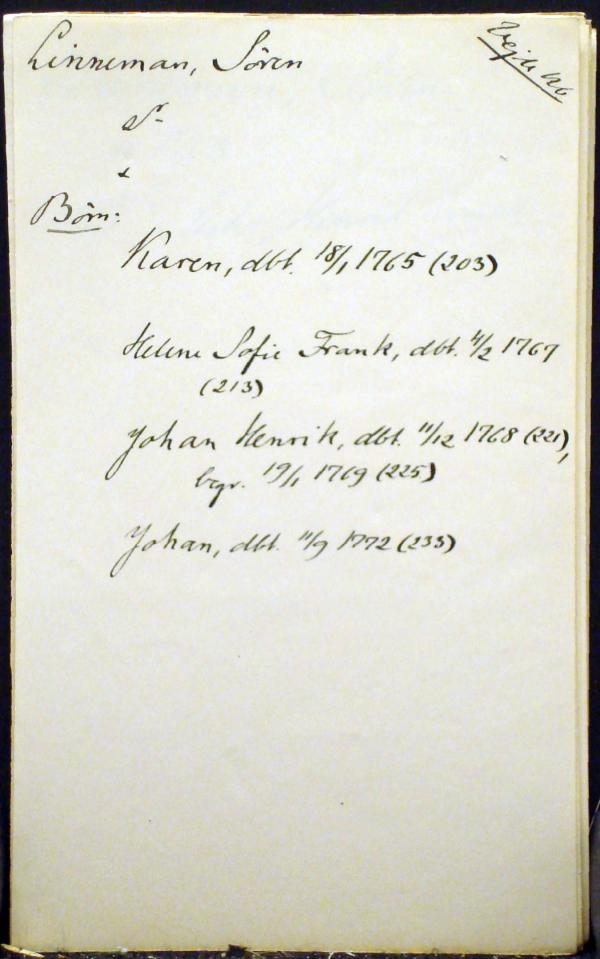 Linneman, Sören
Vejle kb
Sr.
+
Börn:
Karen, dbt. 18/1 1765 (203)
Helene Sofie Frank, dbt. 4/2 1767
(213)
Johan Henrik, dbt. 11/12 1768 (221),
begr. 19/1 1769 (225)
Johan, dbt. 11/9 1772 (233)